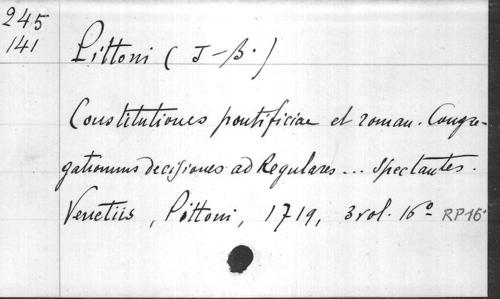 245
141
Pittoni (J-B.)
Constitutiones pontificiae et roman. Congre-
gationum decisiones ad Regulares... spectantes.
Venetiis, Pittoni, 1719, 3 vol. 16° RP16°